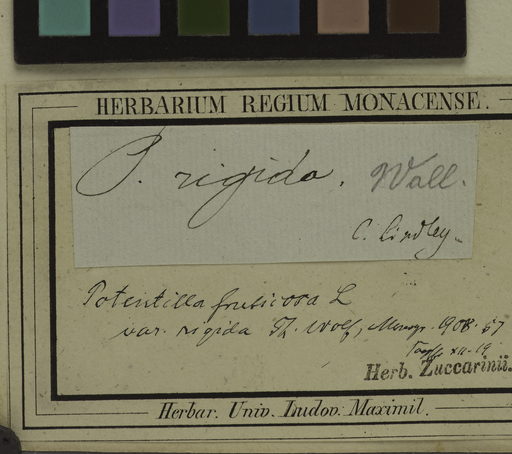 HERBARIUM REGIUM MONACENSE.
P. rigida. Wall.
C. Lindley.
Potentilla fruticosa L
var. rigida Th. Wolf, Monogr. 1908. 57
XII. 19
Herb. Zuccarinii.
Herbar. Univ. Ludov. Maximil.